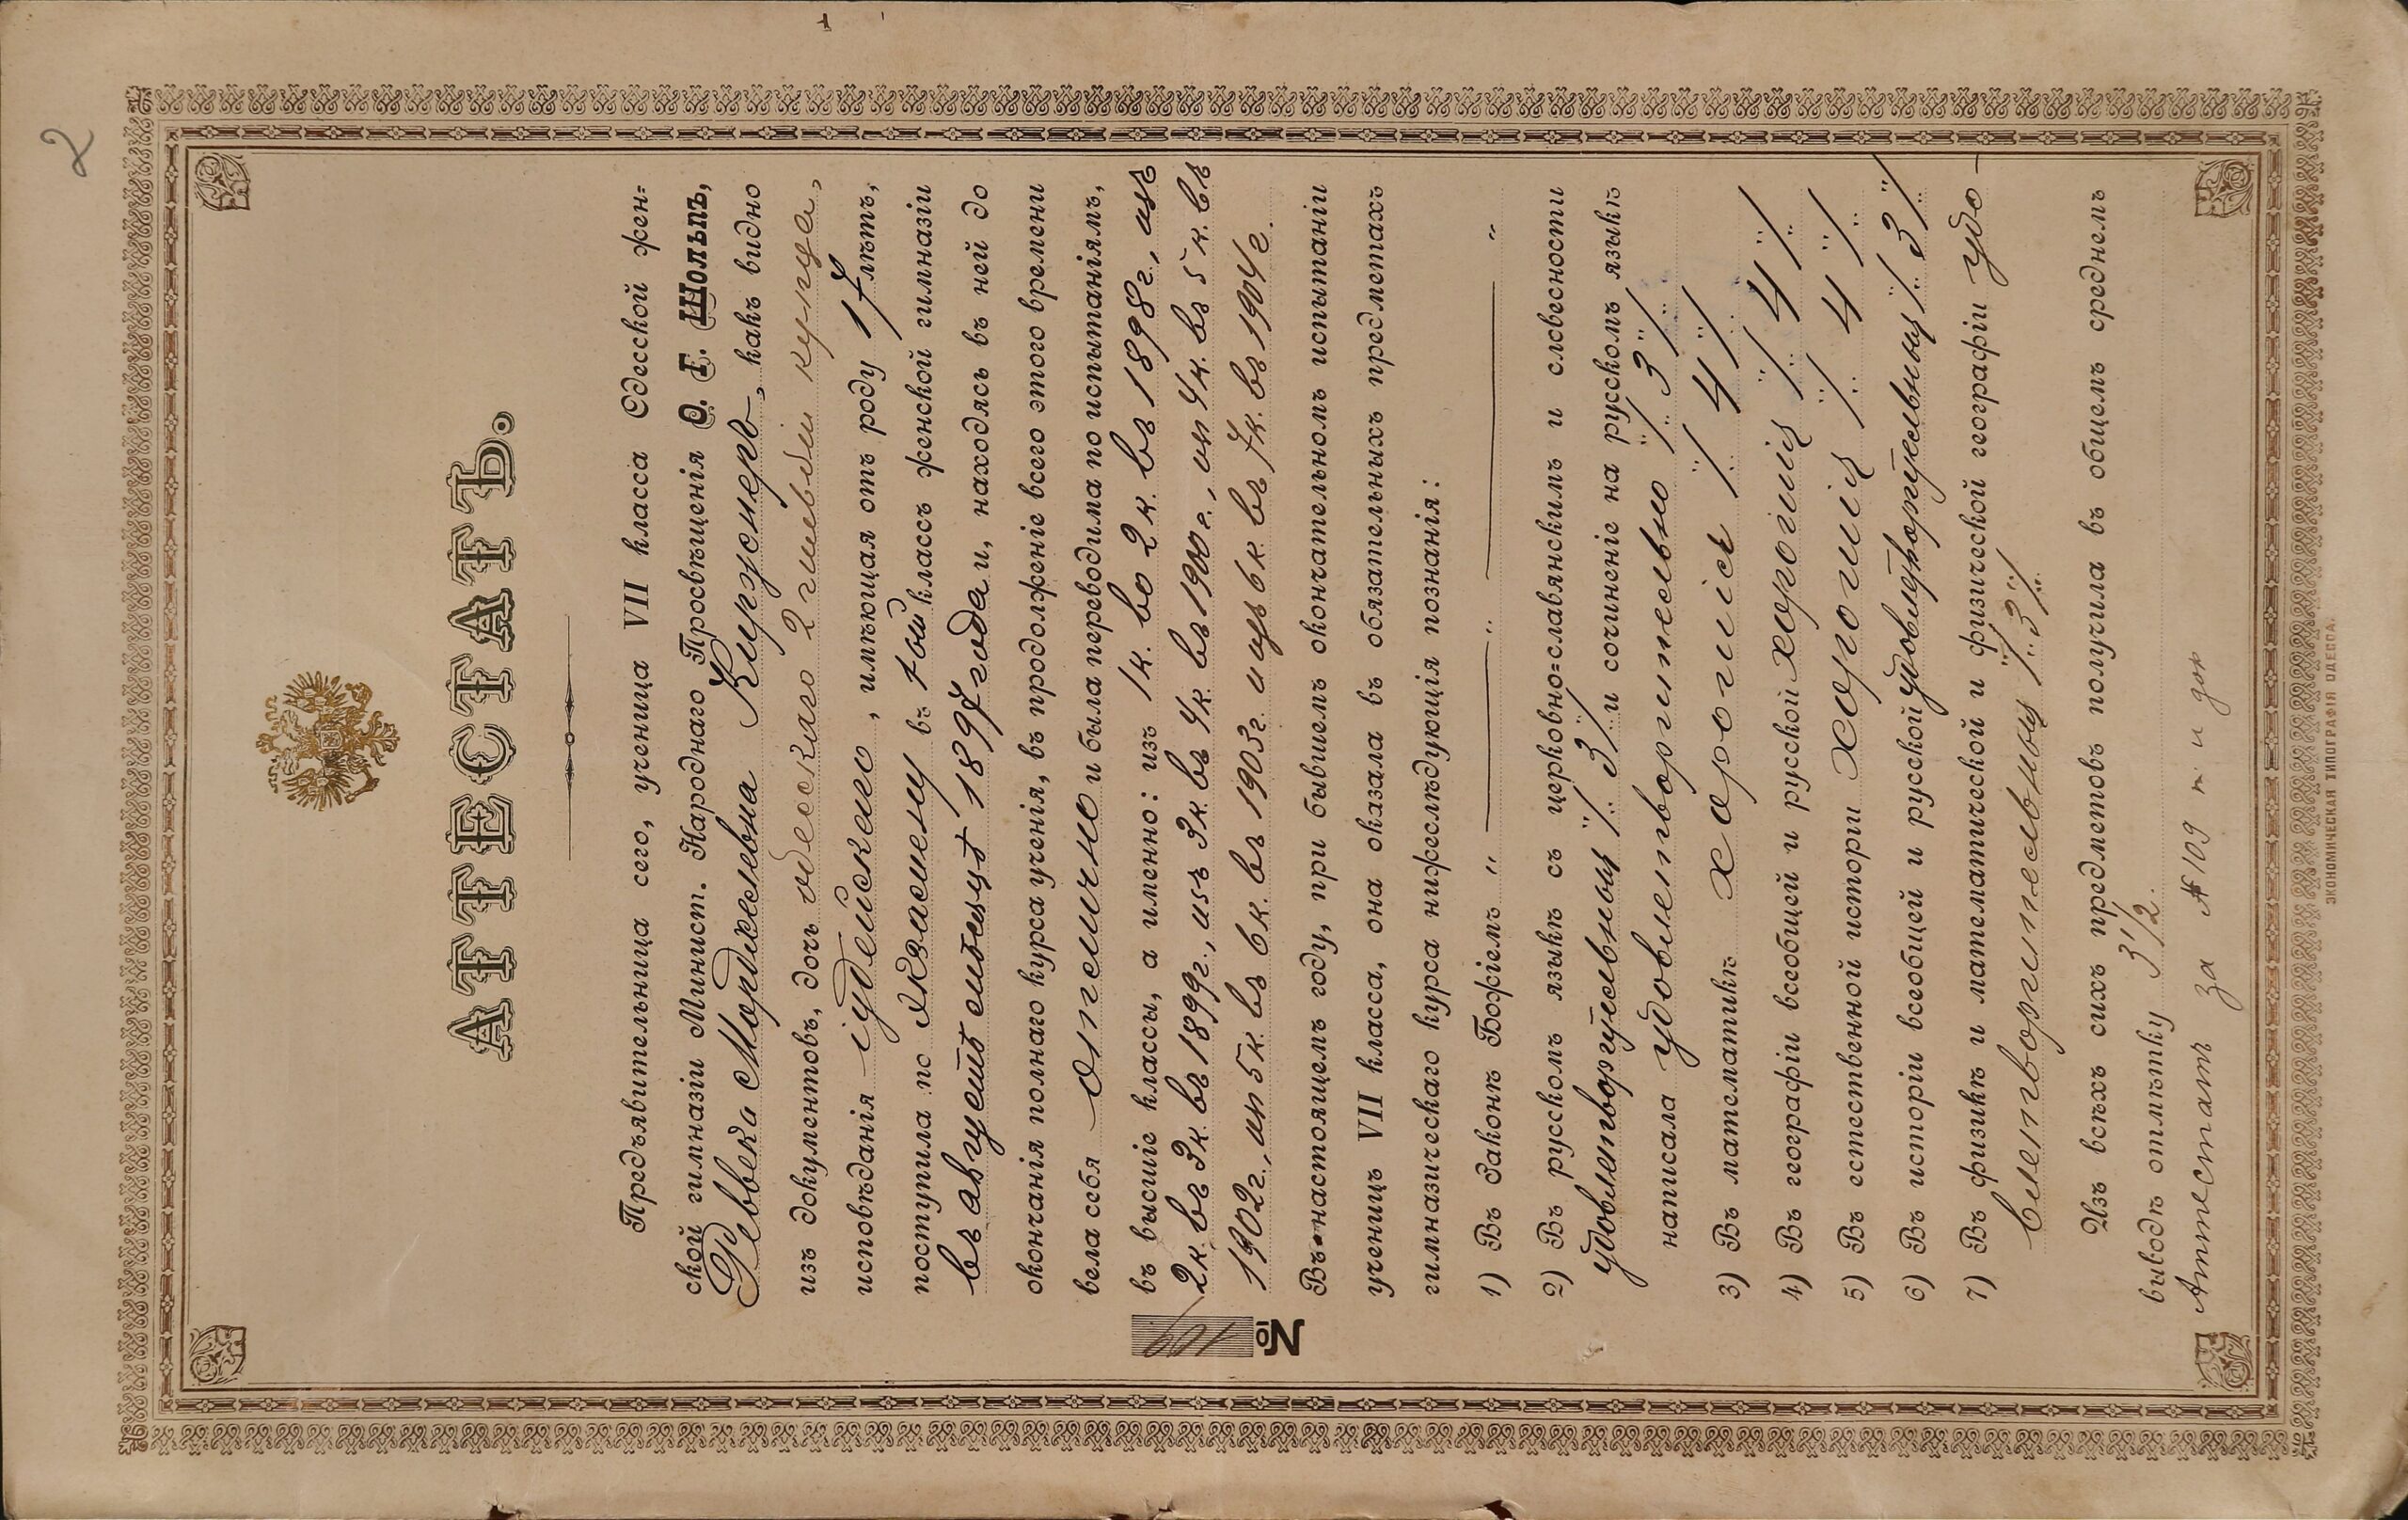 2
АТТЕСТАТЪ.
Предъявительница сего, ученица VII класса Одесской жен=
ской гимназіи Минист. Народнаго Просвѣщенія О. Г. Шольпъ,
Реввека Мордкелевна Киржнеръ, какъ видно
изъ документовъ, дочь одесскаго 2 гильдіи купца,
исповѣданія іудейскаго, имѣющая отъ роду 17 лѣтъ,
поступила по экзамену въ 1ый классъ женской гимназіи
въ августѣ мѣсяцѣ 1897 года и, находясь въ ней до
окончанія полнаго курса ученія, въ продолженіе всего этого времени
вела себя отлично и была переводима по испытаніямъ,
въ высшіе классы, а именно: изъ 1к. во 2 к. въ 1898г., изъ
2к. въ 3к. въ 1899г., изъ 3к. въ 4к. въ 1900г., из 4к. въ 5 к. въ
1902г., из 5к. въ 6к. въ 1903г. и изъ 6к. въ 7к. въ 1904г.
Въ настоящемъ году, при бывшемъ окончательномъ испытаніи
ученицъ VII класса, она оказала въ обязательныхъ предметахъ
гимназическаго курса нижеслѣдующія познанія:
1) Въ законѣ Божіемъ „ — „ — „
2) Въ русскомъ языкѣ съ церковно=славянскимъ и словесности
удовлетворительныя /3/ и сочиненіе на русскомъ языкѣ
написала удовлетворительно /3/
3) Въ математикѣ хорошія /4/
4) Въ географіи всеобщей и русской хорошія /4/
5) Въ естественной исторіи хорошія /4/
6) Въ исторіи всеобщей и русской удовлетворительныя /3/
7) Въ физикѣ и математической и физической географіи удо-
влетворительныя /3/
Изъ всѣхъ сихъ предметовъ получила въ общемъ среднемъ
выводѣ отмѣтку 3 1/2.
Аттестатъ за № 109
№ 109
ЭКОНОМИЧЕСКАЯ ТИПОГРАФІЯ ОДЕССА.